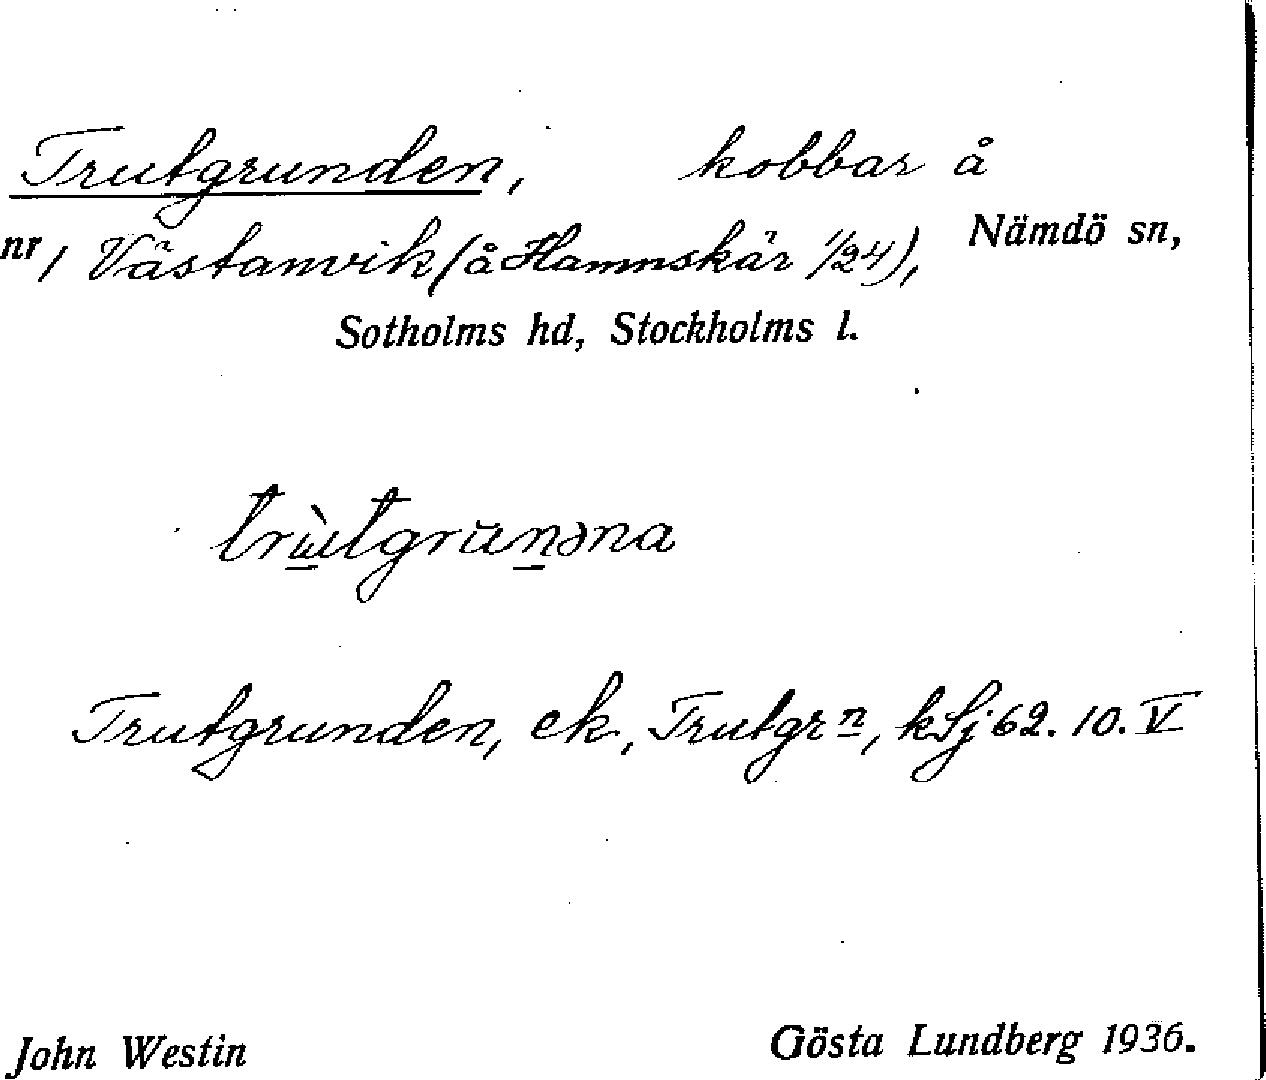 Trutgrunden, kobbar å
nr 1 Västanvik (å Hamnskär 1/24), Nämdö sn,
Sotholms hd, Stockholms l.
Trutgrunden, ek, Trutgrn, kSj 62. 10. V
John Westin Gösta Lundberg 1936.